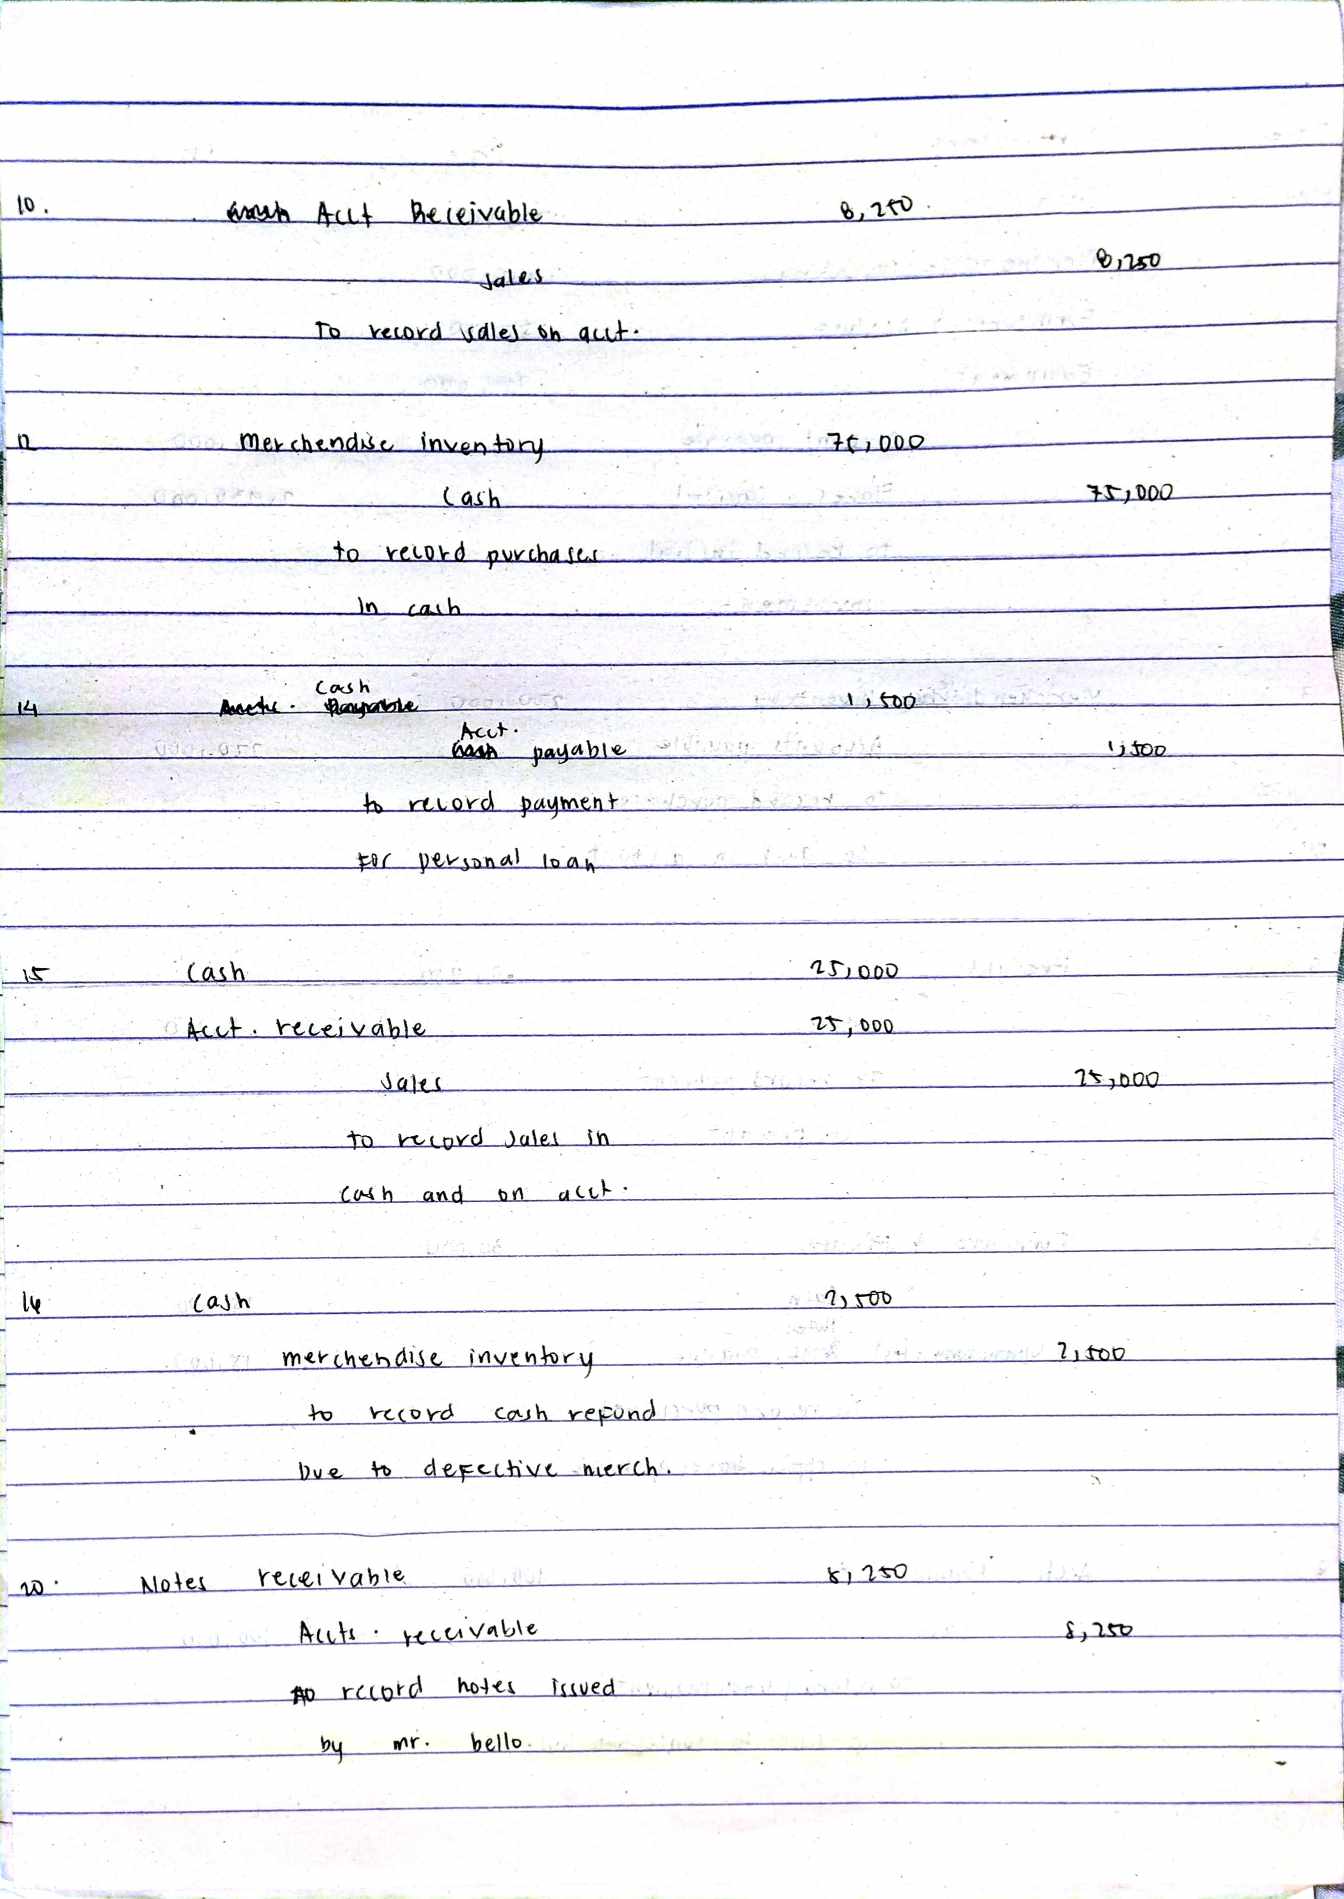 10. Acct Receivable 8,250.
Sales 8,250
To record sales on acct.
12 Merchendise inventory 75,000
Cash 75,000
to record purchases
In cash
Cash
14 Accts. Payable 1,500
Acct.
Cash payable 1,500
to record payment
For personal loan
15 Cash 25,000
Acct. receivable 25,000
Sales 25,000
to record sales in
cash and on acct.
16 Cash 2,500
merchendise inventory 2,500
to record cash refund
Due to defective merch.
20. Notes receivable 8,250
Accts. receivable 8,250
to record notes issued
by mr. bello.